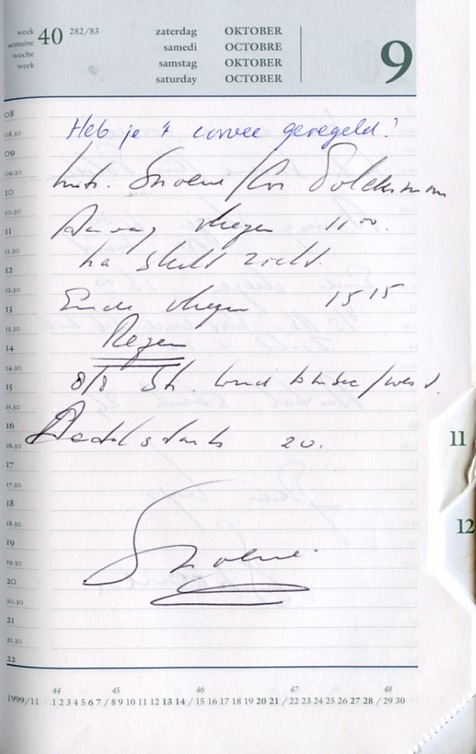 week semaine woche week 40 282/83
zaterdag OKTOBER
samedi OCTOBRE
samstag OKTOBER
saturday OCTOBER
9
08
08.30 Heb je 't corvee geregeld?
09
09.30
10 Instr. Snoene /Cor
10.30
11 vliegen 11 00.
11.30
12 na slecht zicht.
12.30
13 Einde vliegen 15 15
13.30 Regen
14
14.30
15 8/8 St. wind
15.30
16 20.
16.30
17
17.30
18
18.30
19
19.30
20
20.30
21
21.30
22
11
12
44 45 46 47 48
1999/11 1 2 3 4 5 6 7 / 8 9 10 11 12 13 14 / 15 16 17 18 19 20 21 / 22 23 24 25 26 27 28 / 29 30